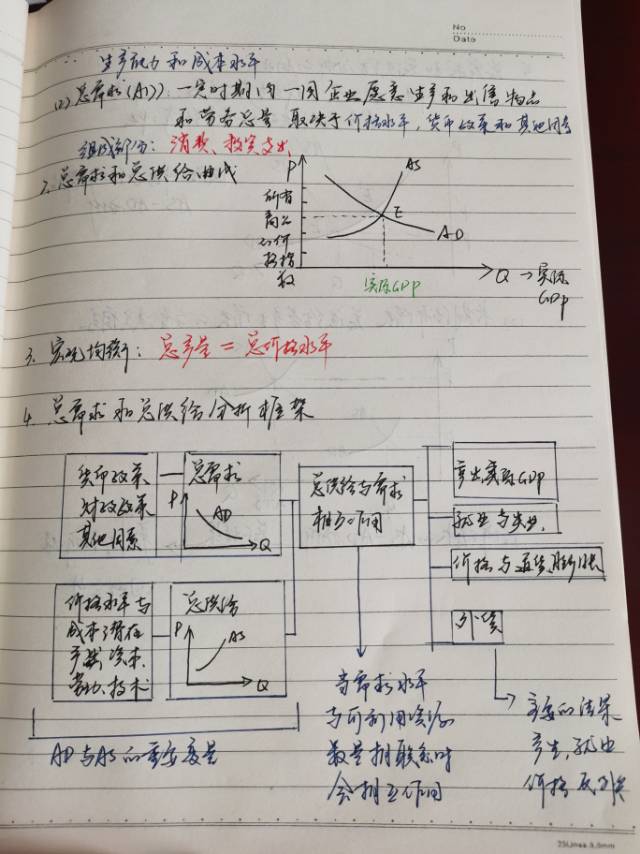 No
Date
生产能力和成本水平
(2) 总需求(AD): 一定时期内一国企业愿意生产和出售物品
和劳务总量 取决于价格水平, 货币政策和其他因素
组成部分: 消费、投资支出
2. 总需求和总供给曲线
P
AS
所有
商品
的价
格指
数
E
AD
实际GDP
Q → 实际
GDP
3. 宏观均衡: 总产量 = 总价格水平
4. 总需求和总供给分析框架
货币政策
财政政策
其他因素
总需求
P
AD
Q
总供给与需求
相互作用
产出实际GDP
就业与失业
价格与通货膨胀
外贸
价格水平与
成本潜在
产出 资本
劳动、技术
总供给
P
AS
Q
AD与AS的重要变量
当需求水平
与可利用资源
数量相联系时
会相互作用
主要的结果
产出, 就业
价格及外贸
25Lines 8.0mm